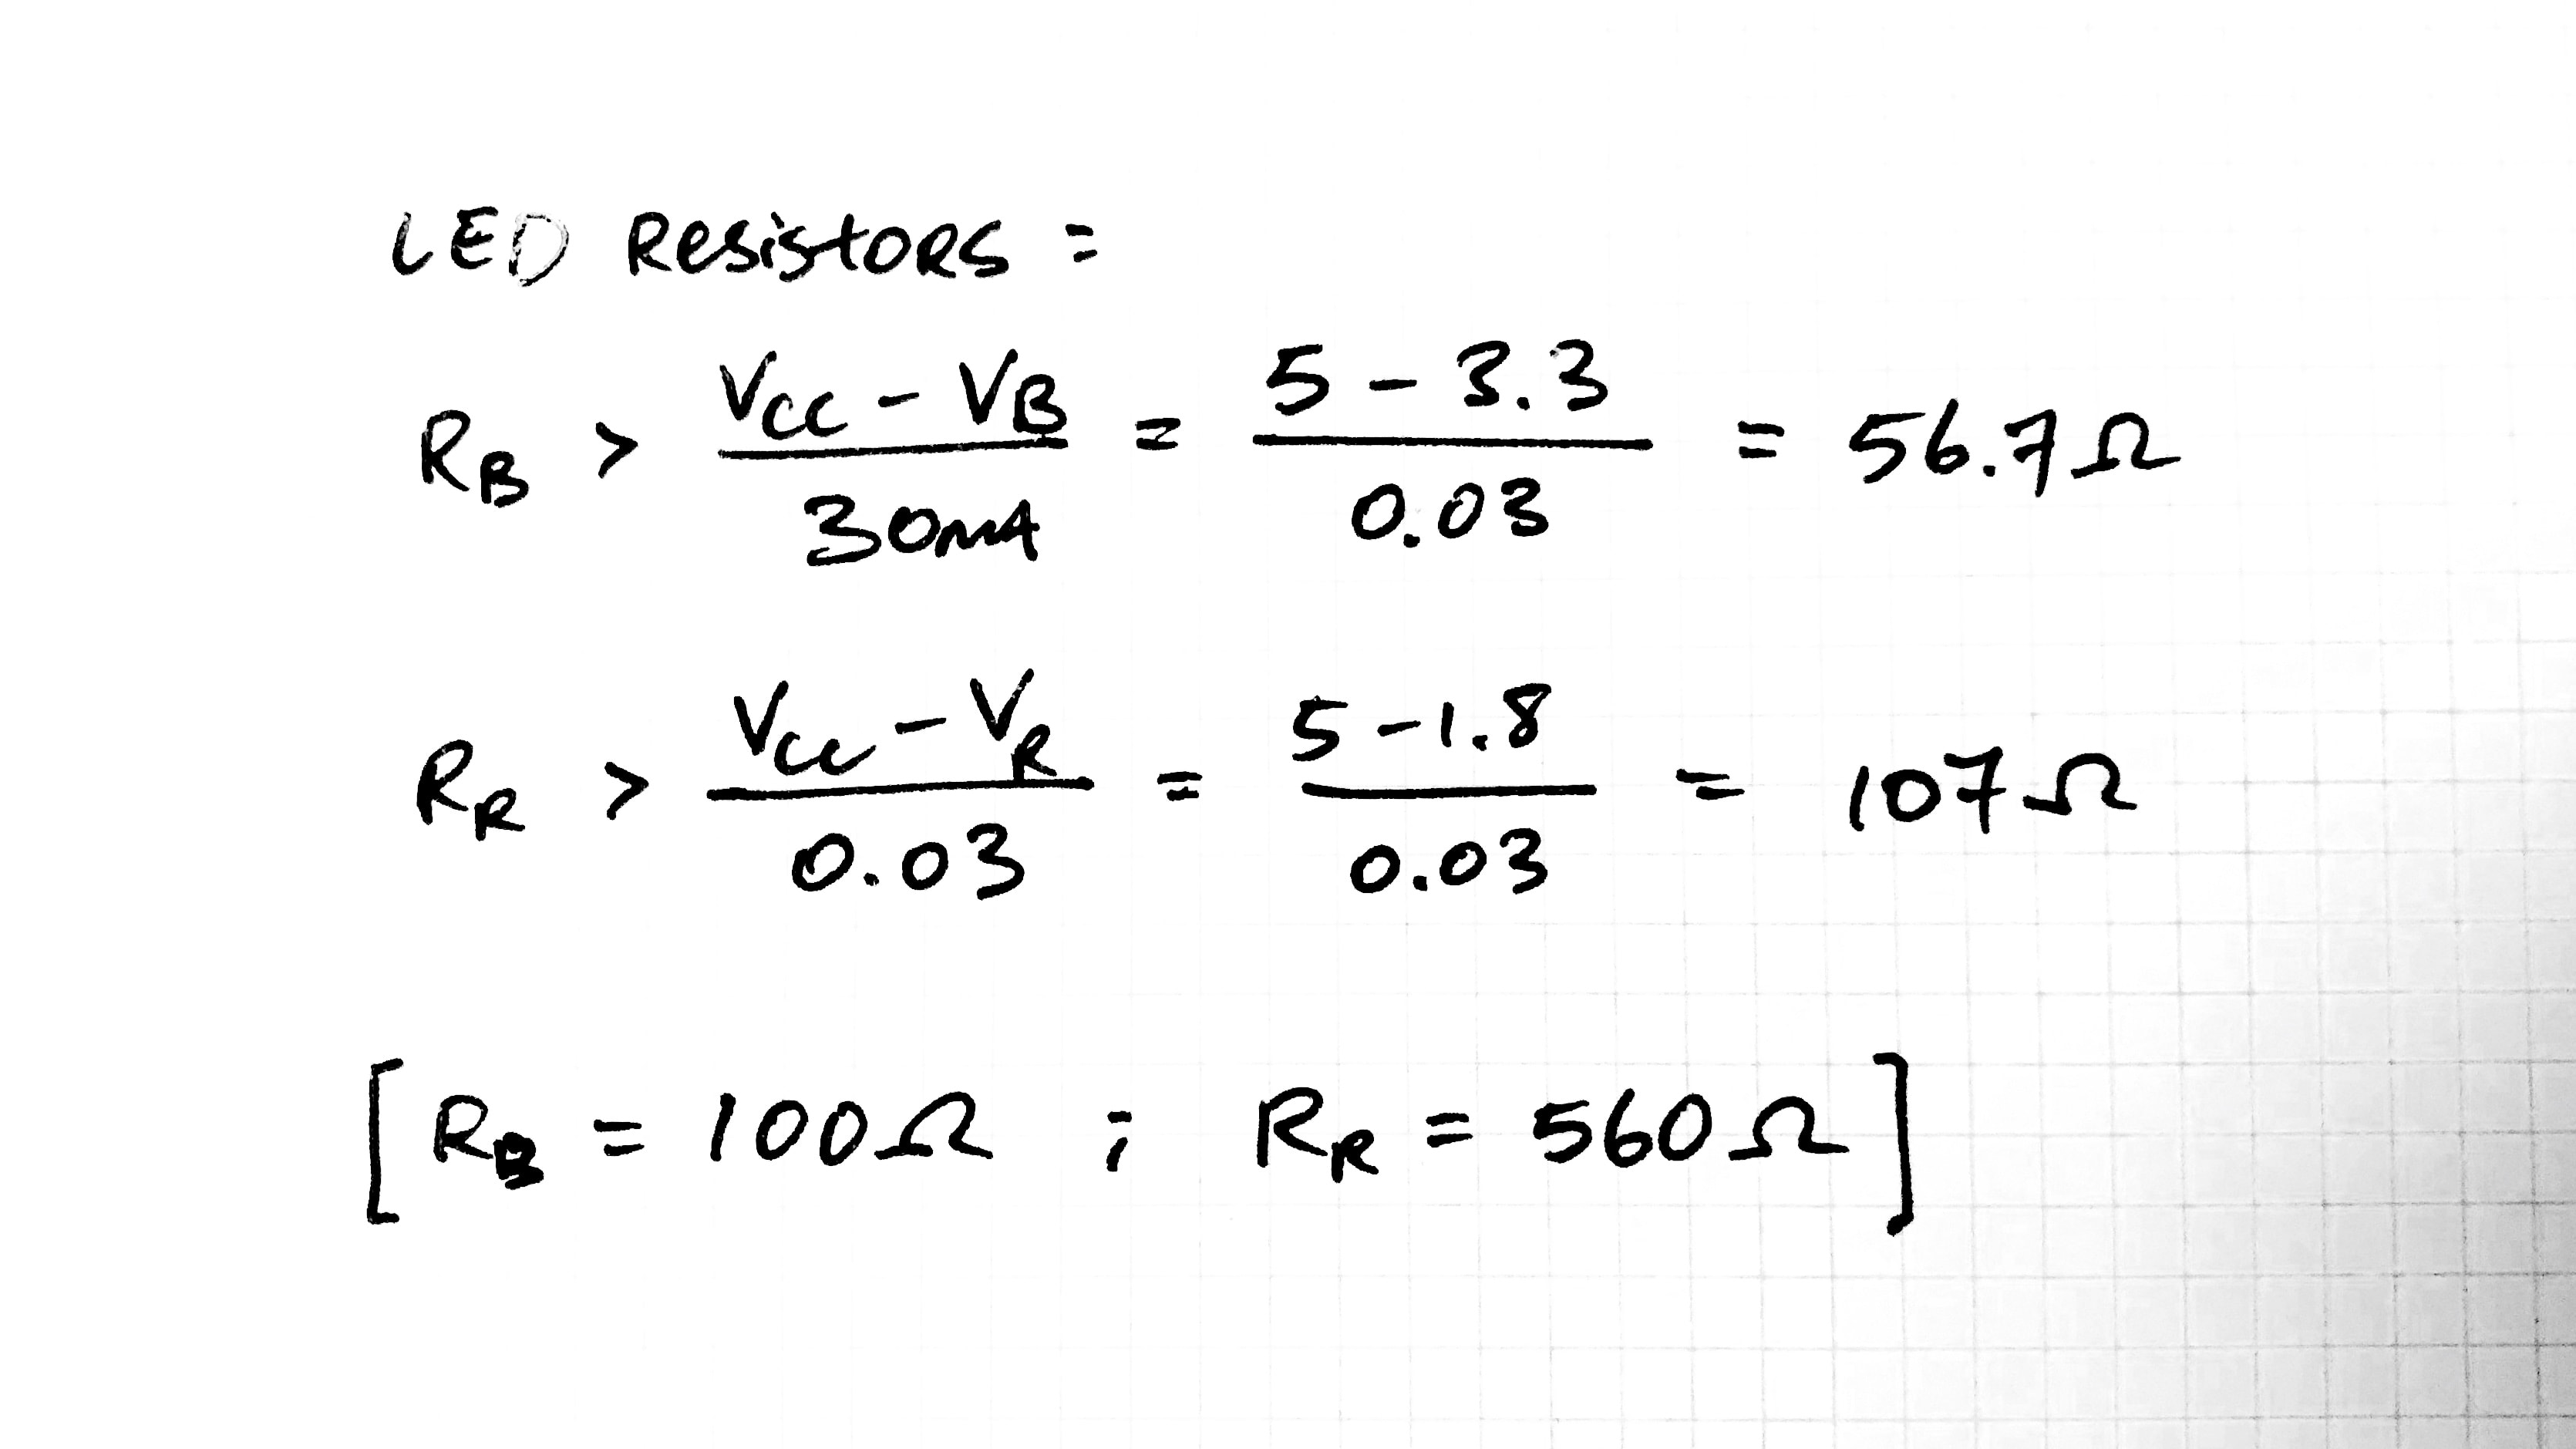 LED Resistors =
RB > VCC - VB / 30mA = 5 - 3.3 / 0.03 = 56.7Ω
RR > VCC - VR / 0.03 = 5 - 1.8 / 0.03 = 107Ω
[RB = 100Ω ; RR = 560Ω]